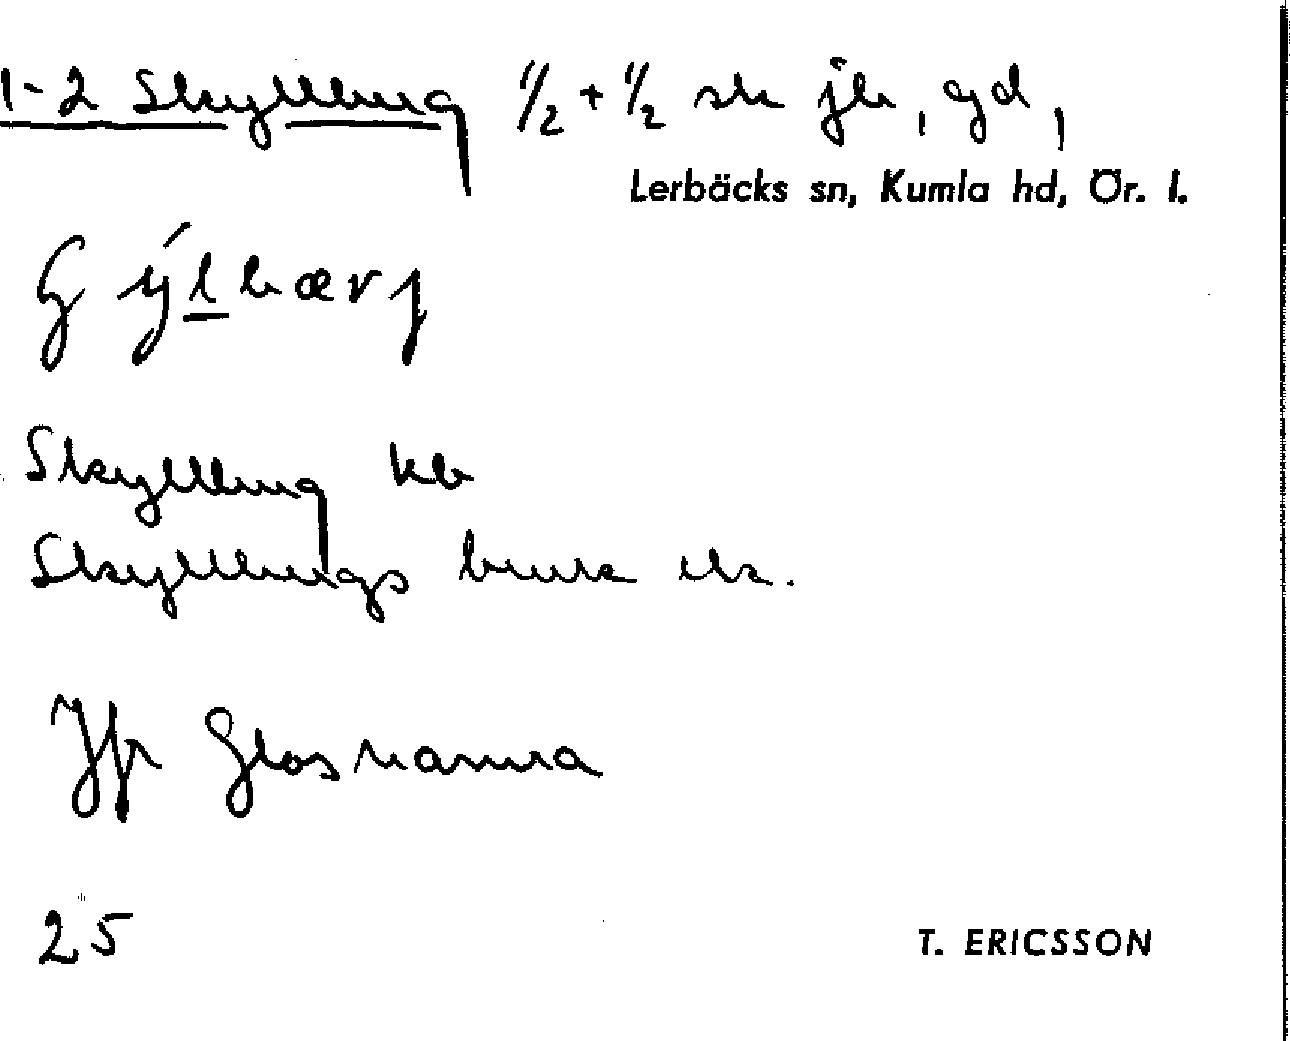 1-2 Skyllberg 1/2 + 1/2 sk jb, gd,
Lerbäcks sn, Kumla hd, Ör. l.
Skyllberg kb
Skyllbergs bruk ek.
Jfr Glosnamna
25
T. ERICSSON